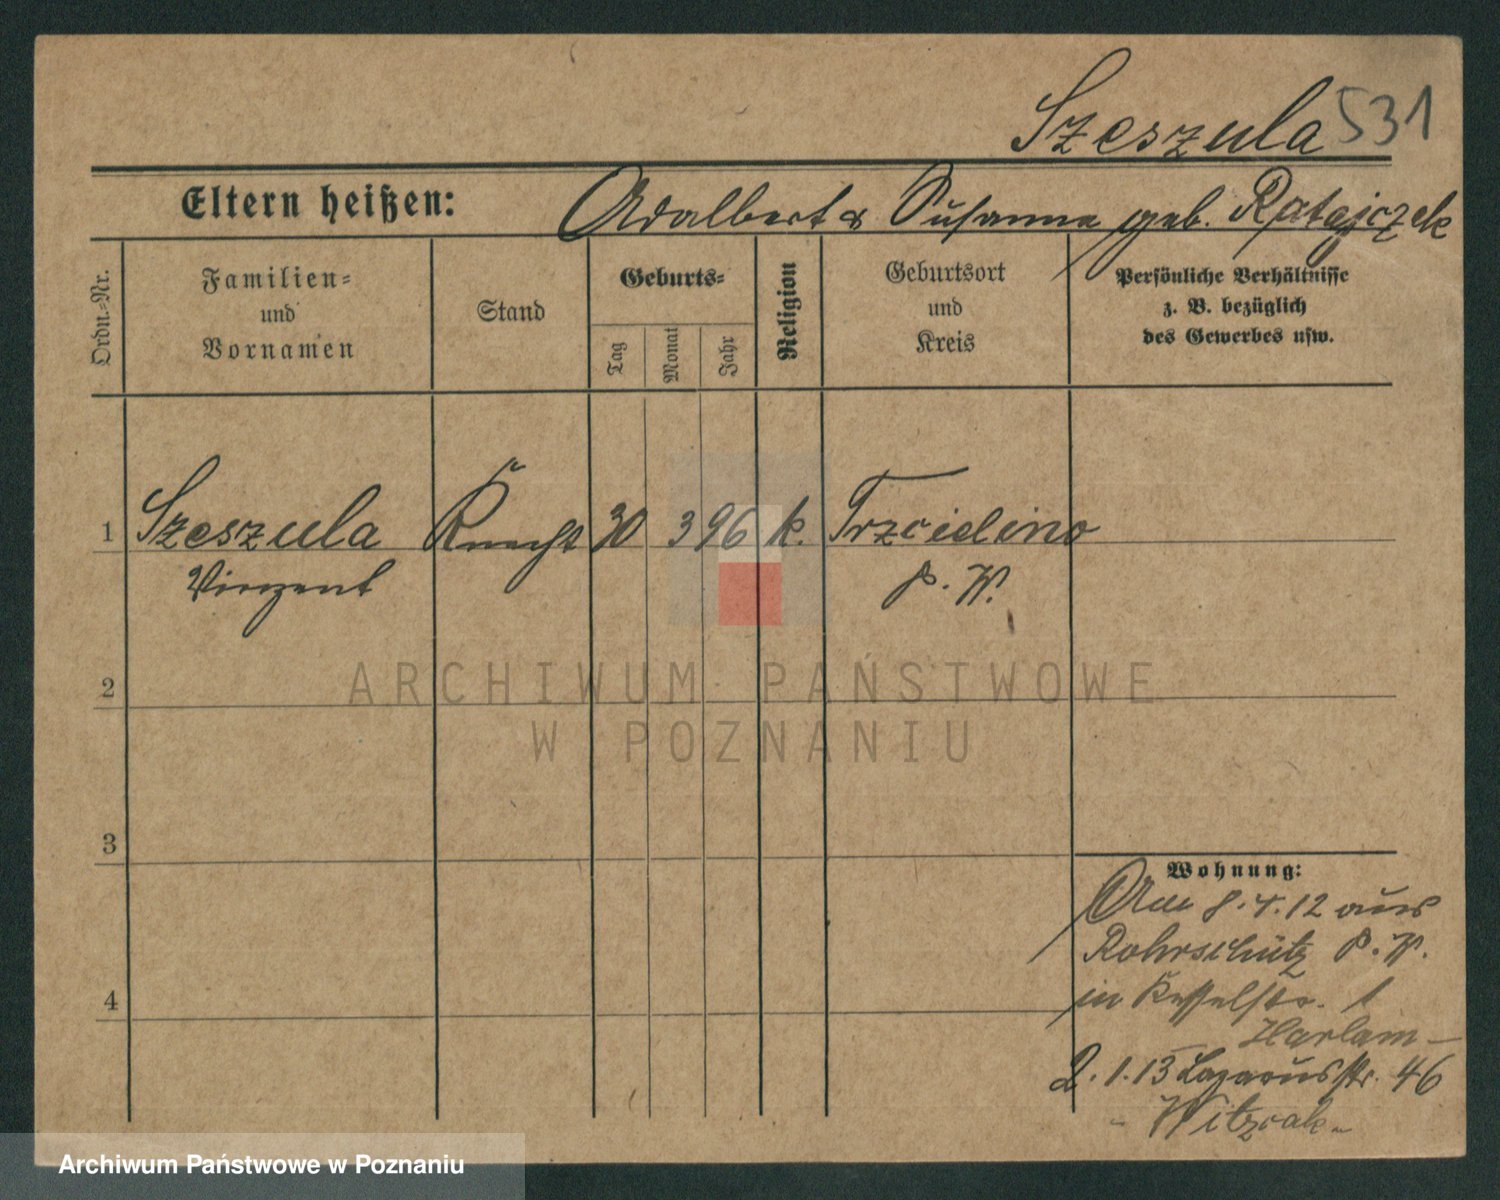 Szeszula 531
Eltern heißen: Adalbert & Susanna geb. Ratajczek
Ordn.-Nr.
Familien-
und
Vornamen
Stand
Geburts-
Tag
Monat
Jahr
Religion
Geburtsort
und
Kreis
Persönliche Verhältnisse
z. B. bezüglich
des Gewerbes usw.
1 Szeszula Knecht 30 3 96 k. Trzcielino
Vinzent P. W.
ARCHIWUM PAŃSTWOWE
W POZNANIU
2
3
4
Wohnung:
Am 8.4.12 aus
Rohrschütz P. W.
in Kesselstr. 1
Harlam -
2.1.13 Lazarusstr. 46
- Witzcak -
Archiwum Państwowe w Poznaniu